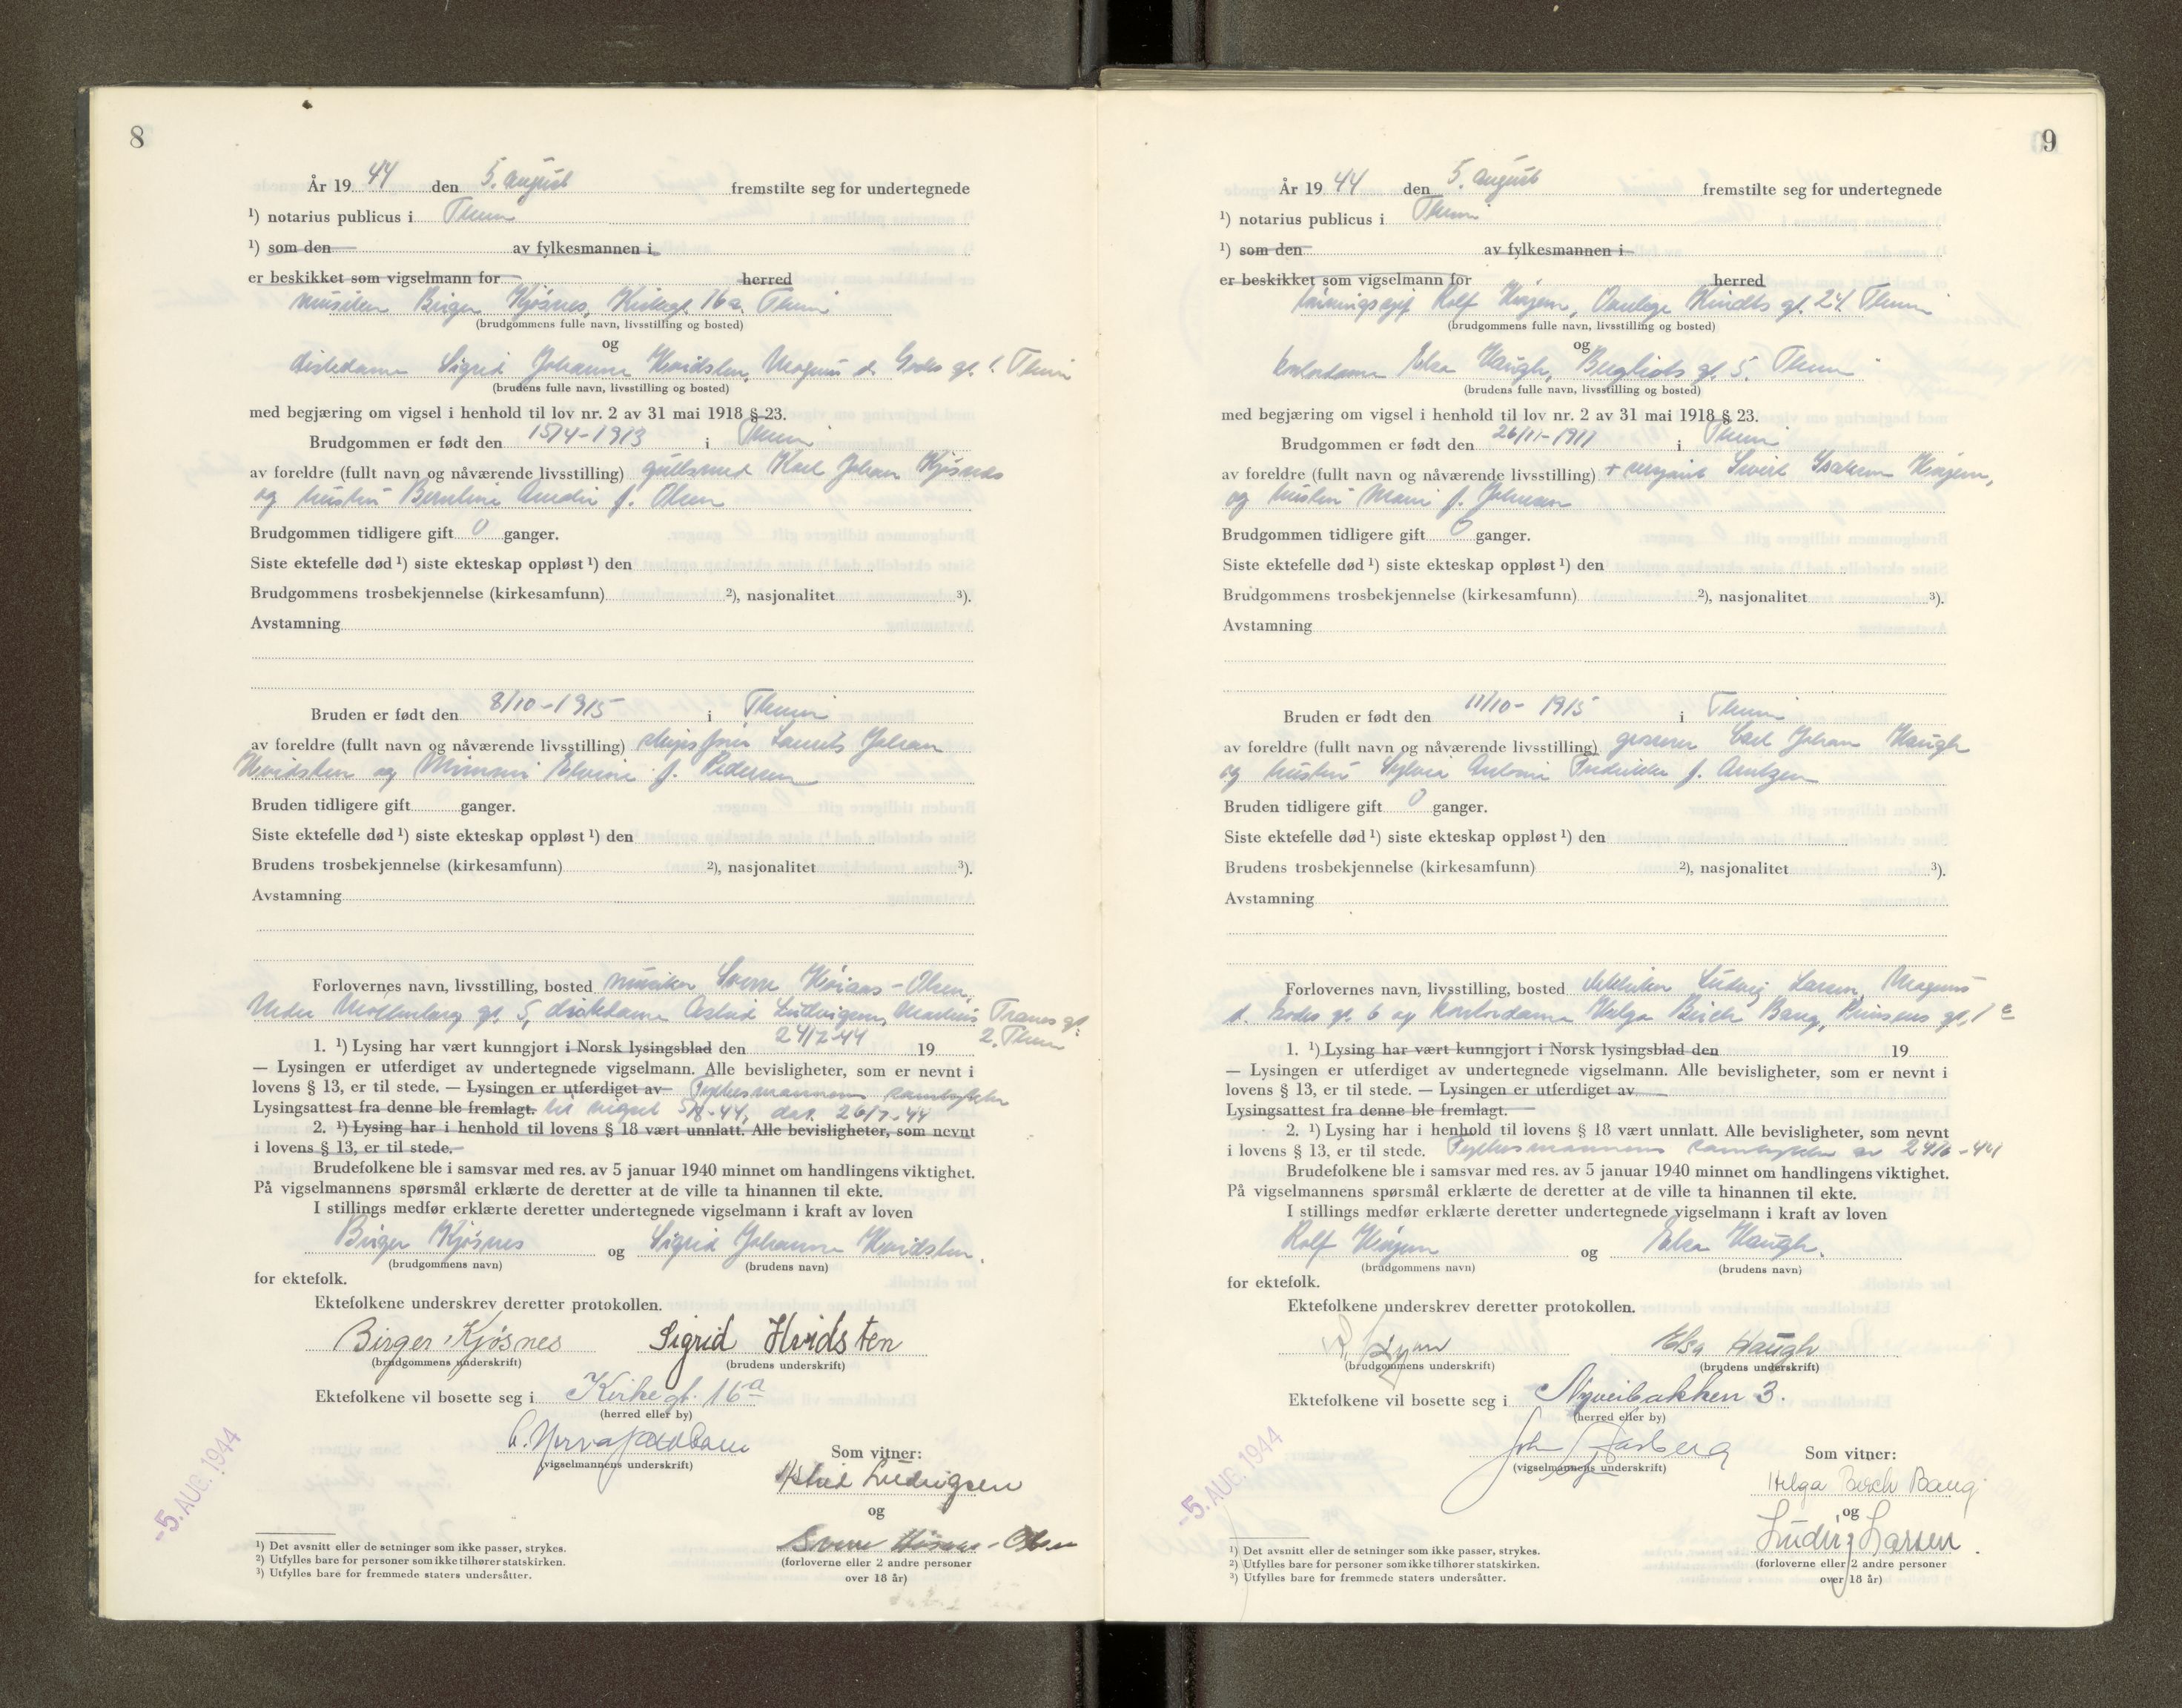 8
År 19 44 den 5. august fremstilte seg for undertegnede
¹) notarius publicus i Thum
¹) som den av fylkesmannen i
er beskikket som vigselmann for herred
musiker Birger Kjösnes, Kirkegt. 16a. Thum
(brudgommens fulle navn, livsstilling og bosted)
og
diskedame Sigrid Johanne Hvidsten, Magnus d. Godes gt. 1. Thum
(brudens fulle navn, livsstilling og bosted)
med begjæring om vigsel i henhold til lov nr. 2 av 31 mai 1918 § 23.
Brudgommen er født den 15/4-1913 i Thum
av foreldre (fullt navn og nåværende livsstilling) gullsmed Karl Johan Kjösnes
og hustru Berntine Amalie f. Olsen
Brudgommen tidligere gift 0 ganger.
Siste ektefelle død ¹) siste ekteskap oppløst ¹) den
Brudgommens trosbekjennelse (kirkesamfunn) ²), nasjonalitet ³).
Avstamning
Bruden er født den 8/10-1915 i Thum
av foreldre (fullt navn og nåværende livsstilling) Laurits Johan
Hvidsten og Elvine f. Pedersen
Bruden tidligere gift ganger.
Siste ektefelle død ¹) siste ekteskap oppløst ¹) den
Brudens trosbekjennelse (kirkesamfunn) ²), nasjonalitet ³).
Avstamning
Forlovernes navn, livsstilling, bosted musiker Sverre -Olsen,
Nedre Möllenberg gt. 5, diskedame Astrid Ludvigsen, Tranes gt.
2. Thum
1. ¹) Lysing har vært kunngjort i Norsk lysingsblad den 24/7-44 19
— Lysingen er utferdiget av undertegnede vigselmann. Alle bevisligheter, som er nevnt i
lovens § 13, er til stede. — Lysingen er utferdiget av Fylkesmannens samtykke
Lysingsattest fra denne ble fremlagt. til vigsel 5/8-44, dat. 26/7-44
2. ¹) Lysing har i henhold til lovens § 18 vært unnlatt. Alle bevisligheter, som nevnt
i lovens § 13, er til stede.
Brudefolkene ble i samsvar med res. av 5 januar 1940 minnet om handlingens viktighet.
På vigselmannens spørsmål erklærte de deretter at de ville ta hinannen til ekte.
I stillings medfør erklærte deretter undertegnede vigselmann i kraft av loven
Birger Kjösnes og Sigrid Johanne Hvidsten.
(brudgommens navn) (brudens navn)
for ektefolk.
Ektefolkene underskrev deretter protokollen.
Birger Kjösnes Sigrid Hvidsten
(brudgommens underskrift) (brudens underskrift)
Ektefolkene vil bosette seg i Kirkegt. 16a
(herred eller by)
(vigselmannens underskrift)
Som vitner:
Astrid Ludvigsen
og
Sverre -Olsen
(forloverne eller 2 andre personer
over 18 år)
-5. AUG. 1944
¹) Det avsnitt eller de setninger som ikke passer, strykes.
²) Utfylles bare for personer som ikke tilhører statskirken.
³) Utfylles bare for fremmede staters undersåtter.
9
År 19 44 den 5. august fremstilte seg for undertegnede
¹) notarius publicus i Thum
¹) som den av fylkesmannen i
er beskikket som vigselmann for herred
Rolf Kindts gt. 24. Thum
(brudgommens fulle navn, livsstilling og bosted)
og
kontordame Elsa Haugh, Bergliots gt. 5. Thum
(brudens fulle navn, livsstilling og bosted)
med begjæring om vigsel i henhold til lov nr. 2 av 31 mai 1918 § 23.
Brudgommen er født den 26/11-1911 i Thum
av foreldre (fullt navn og nåværende livsstilling) + sersjant
og hustru Marie f. Johnsen
Brudgommen tidligere gift 0 ganger.
Siste ektefelle død ¹) siste ekteskap oppløst ¹) den
Brudgommens trosbekjennelse (kirkesamfunn) ²), nasjonalitet ³).
Avstamning
Bruden er født den 11/10-1915 i Thum
av foreldre (fullt navn og nåværende livsstilling) grosserer Carl Johan Haugh
og hustru Sylvia Antonie Fredrikke f. Arntzen
Bruden tidligere gift 0 ganger.
Siste ektefelle død ¹) siste ekteskap oppløst ¹) den
Brudens trosbekjennelse (kirkesamfunn) ²), nasjonalitet ³).
Avstamning
Forlovernes navn, livsstilling, bosted Ludvig Larsen, Magnus
d. Godes gt. 6 og kontordame Helga Birch Bang,
1. ¹) Lysing har vært kunngjort i Norsk lysingsblad den 19
— Lysingen er utferdiget av undertegnede vigselmann. Alle bevisligheter, som er nevnt i
lovens § 13, er til stede. — Lysingen er utferdiget av
Lysingsattest fra denne ble fremlagt.
2. ¹) Lysing har i henhold til lovens § 18 vært unnlatt. Alle bevisligheter, som nevnt
i lovens § 13, er til stede. Fylkesmannens samtykke av 24/6-44
Brudefolkene ble i samsvar med res. av 5 januar 1940 minnet om handlingens viktighet.
På vigselmannens spørsmål erklærte de deretter at de ville ta hinannen til ekte.
I stillings medfør erklærte deretter undertegnede vigselmann i kraft av loven
Rolf og Elsa Haugh.
(brudgommens navn) (brudens navn)
for ektefolk.
Ektefolkene underskrev deretter protokollen.
Elsa Haugh
(brudgommens underskrift) (brudens underskrift)
Ektefolkene vil bosette seg i Nyveibakken 3.
(herred eller by)
John
(vigselmannens underskrift)
Som vitner:
Helga Birch Bang
og
Ludvig Larsen.
(forloverne eller 2 andre personer
over 18 år)
-5. AUG. 1944
¹) Det avsnitt eller de setninger som ikke passer, strykes.
²) Utfylles bare for personer som ikke tilhører statskirken.
³) Utfylles bare for fremmede staters undersåtter.